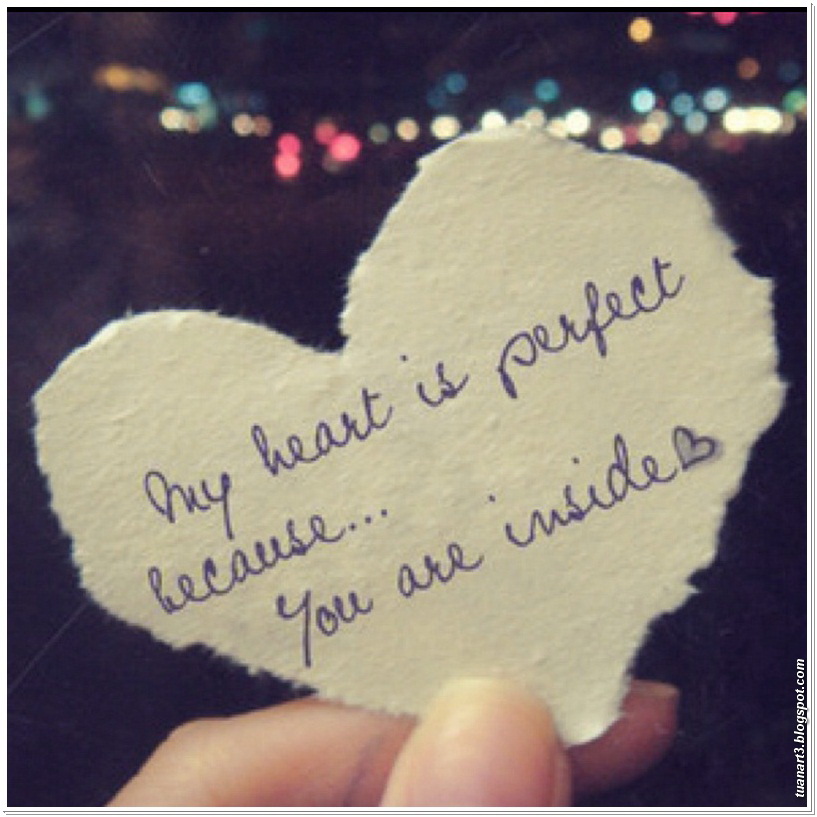 My heart is perfect
because...
You are inside
tuanart3.blogspot.com